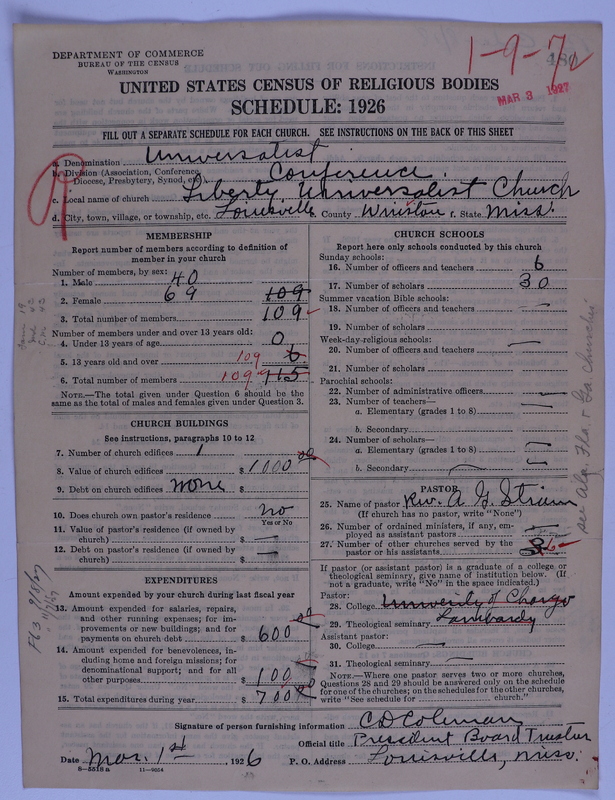 DEPARTMENT OF COMMERCE
BUREAU OF THE CENSUS
WASHINGTON
1-9-72
480
MAR 3 1927
UNITED STATES CENSUS OF RELIGIOUS BODIES
SCHEDULE: 1926
FILL OUT A SEPARATE SCHEDULE FOR EACH CHURCH. SEE INSTRUCTIONS ON THE BACK OF THIS SHEET
a. Denomination Universalist
b. Division (Association, Conference, Diocese, Presbytery, Synod, etc.) Conference.
c. Local name of church Liberty Universalist Church
d. City, town, village, or township, etc. Louisville e. County Winston f. State Miss.
MEMBERSHIP
Report number of members according to definition of
member in your church
Number of members, by sex:
1. Male 40
2. Female 69 109
3. Total number of members 109
Number of members under and over 13 years old:
4. Under 13 years of age 0
5. 13 years old and over 109 6
6. Total number of members 109 115
NOTE.—The total given under Question 6 should be
same as the total of males and females given under Question 3.
CHURCH BUILDINGS
See instructions, paragraphs 10 to 12
7. Number of church edifices 1
8. Value of church edifices $ 1000 00
9. Debt on church edifices none $
10. Does church own pastor's residence? no
Yes or No
11. Value of pastor's residence (if owned by
church) $ —
12. Debt on pastor's residence (if owned by
church) $ —
EXPENDITURES
Amount expended by church during last fiscal year
13. Amount expended for salaries, repairs,
and other running expenses; for im-
provements or new buildings; and for
payments on church debt $ 600
14. Amount expended for benevolences, in-
cluding home and foreign missions; for
denominational support; and for all
other purposes $ 100
15. Total expenditures during year $ 700
CHURCH SCHOOLS
Report here only schools conducted by this church
Sunday schools:
16. Number of officers and teachers 6
17. Number of scholars 30
Summer vacation Bible schools:
18. Number of officers and teachers —
19. Number of scholars
Week-day-religious schools:
20. Number of officers and teachers —
21. Number of scholars
Parochial schools:
22. Number of administrative officers —
23. Number of teachers—
a. Elementary (grades 1 to 8) —
b. Secondary
24. Number of scholars—
a. Elementary (grades 1 to 8) —
b. Secondary —
PASTOR
25. Name of pastor Rev. A. G. Strain
(If church has no pastor, write "None")
26. Number of ordained ministers, if any, em-
ployed as assistant pastors —
27. Number of other churches served by the
pastor or his assistants
If pastor (or assistant pastor) is a graduate of a college or
theological seminary, give name of institution below. (If
not a graduate, write "No" in the space indicated.)
Pastor:
28. College University of Chicago
29. Theological seminary Lombardy
Assistant pastor:
30. College —
31. Theological seminary —
NOTE.—Where one pastor serves two or more churches,
Questions 28 and 29 should be answered only on the schedule
for one of the churches; on the schedules for the other churches,
write "See schedule for church."
see Ala. Fla. & Ga churches
Signature of person furnishing information C D Coleman
Official title President Board Trustees
Date Mar. 1st, 1926 P. O. Address Louisville, Miss.
8—5518 a 11—9054